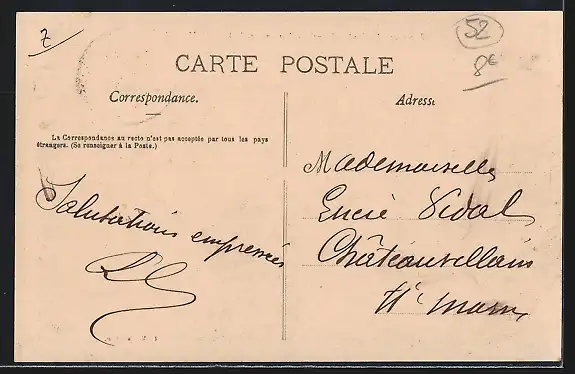 z
52
8€
CARTE POSTALE
Correspondance.
Adresse
La Correspondance au recto n'est pas acceptée par tous les pays
étrangers. (Se renseigner à la Poste.)
Mademoiselle
Lucie Vidal
Châteauvillain
Hte Marne
Salutations empressées